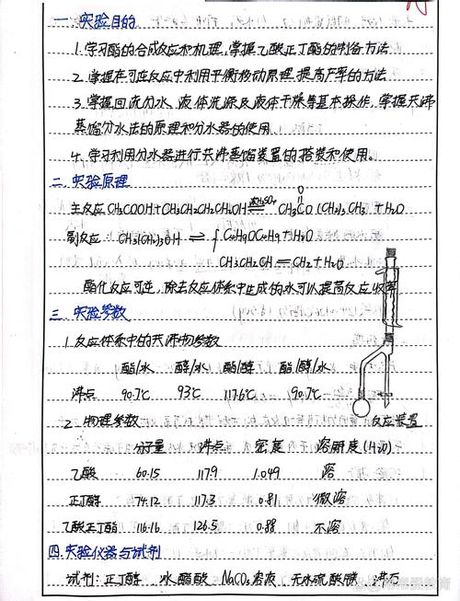 一. 实验目的
1. 学习酯的合成反应和机理, 掌握乙酸正丁酯的制备方法
2. 掌握在可逆反应中利用平衡移动原理, 提高产率的方法
3. 掌握回流分水、液体洗涤及液体干燥等基本操作. 掌握共沸
蒸馏分水法的原理和分水器的使用
4. 学习利用分水器进行共沸蒸馏装置的搭装和使用。
二. 实验原理
主反应 CH₃COOH+CH₃CH₂CH₂CH₂OH ⇌ 浓H₂SO₄ CH₃CO(CH₂)₃CH₃ + H₂O
O
副反应 CH₃(CH₂)₃OH ⇌ { C₄H₉OC₄H₉+H₂O
CH₃CH₂CH=CH₂+H₂O
酯化反应可逆, 除去反应体系中生成的水可以提高反应收率
三. 实验参数
1. 反应体系中的共沸物参数
酯/水 醇/水 酯/醇 酯/醇/水
沸点 90.7℃ 93℃ 117.6℃ 90.7℃
2. 物理参数 反应装置
分子量 沸点 密度 溶解度(H₂O)
乙酸 60.15 117.9 1.049 溶
正丁醇 74.12 117.3 0.81 微溶
乙酸正丁酯 116.16 126.5 0.88 不溶
四. 实验仪器与试剂
试剂: 正丁醇, 冰醋酸, NaCO₃溶液, 无水硫酸镁, 沸石